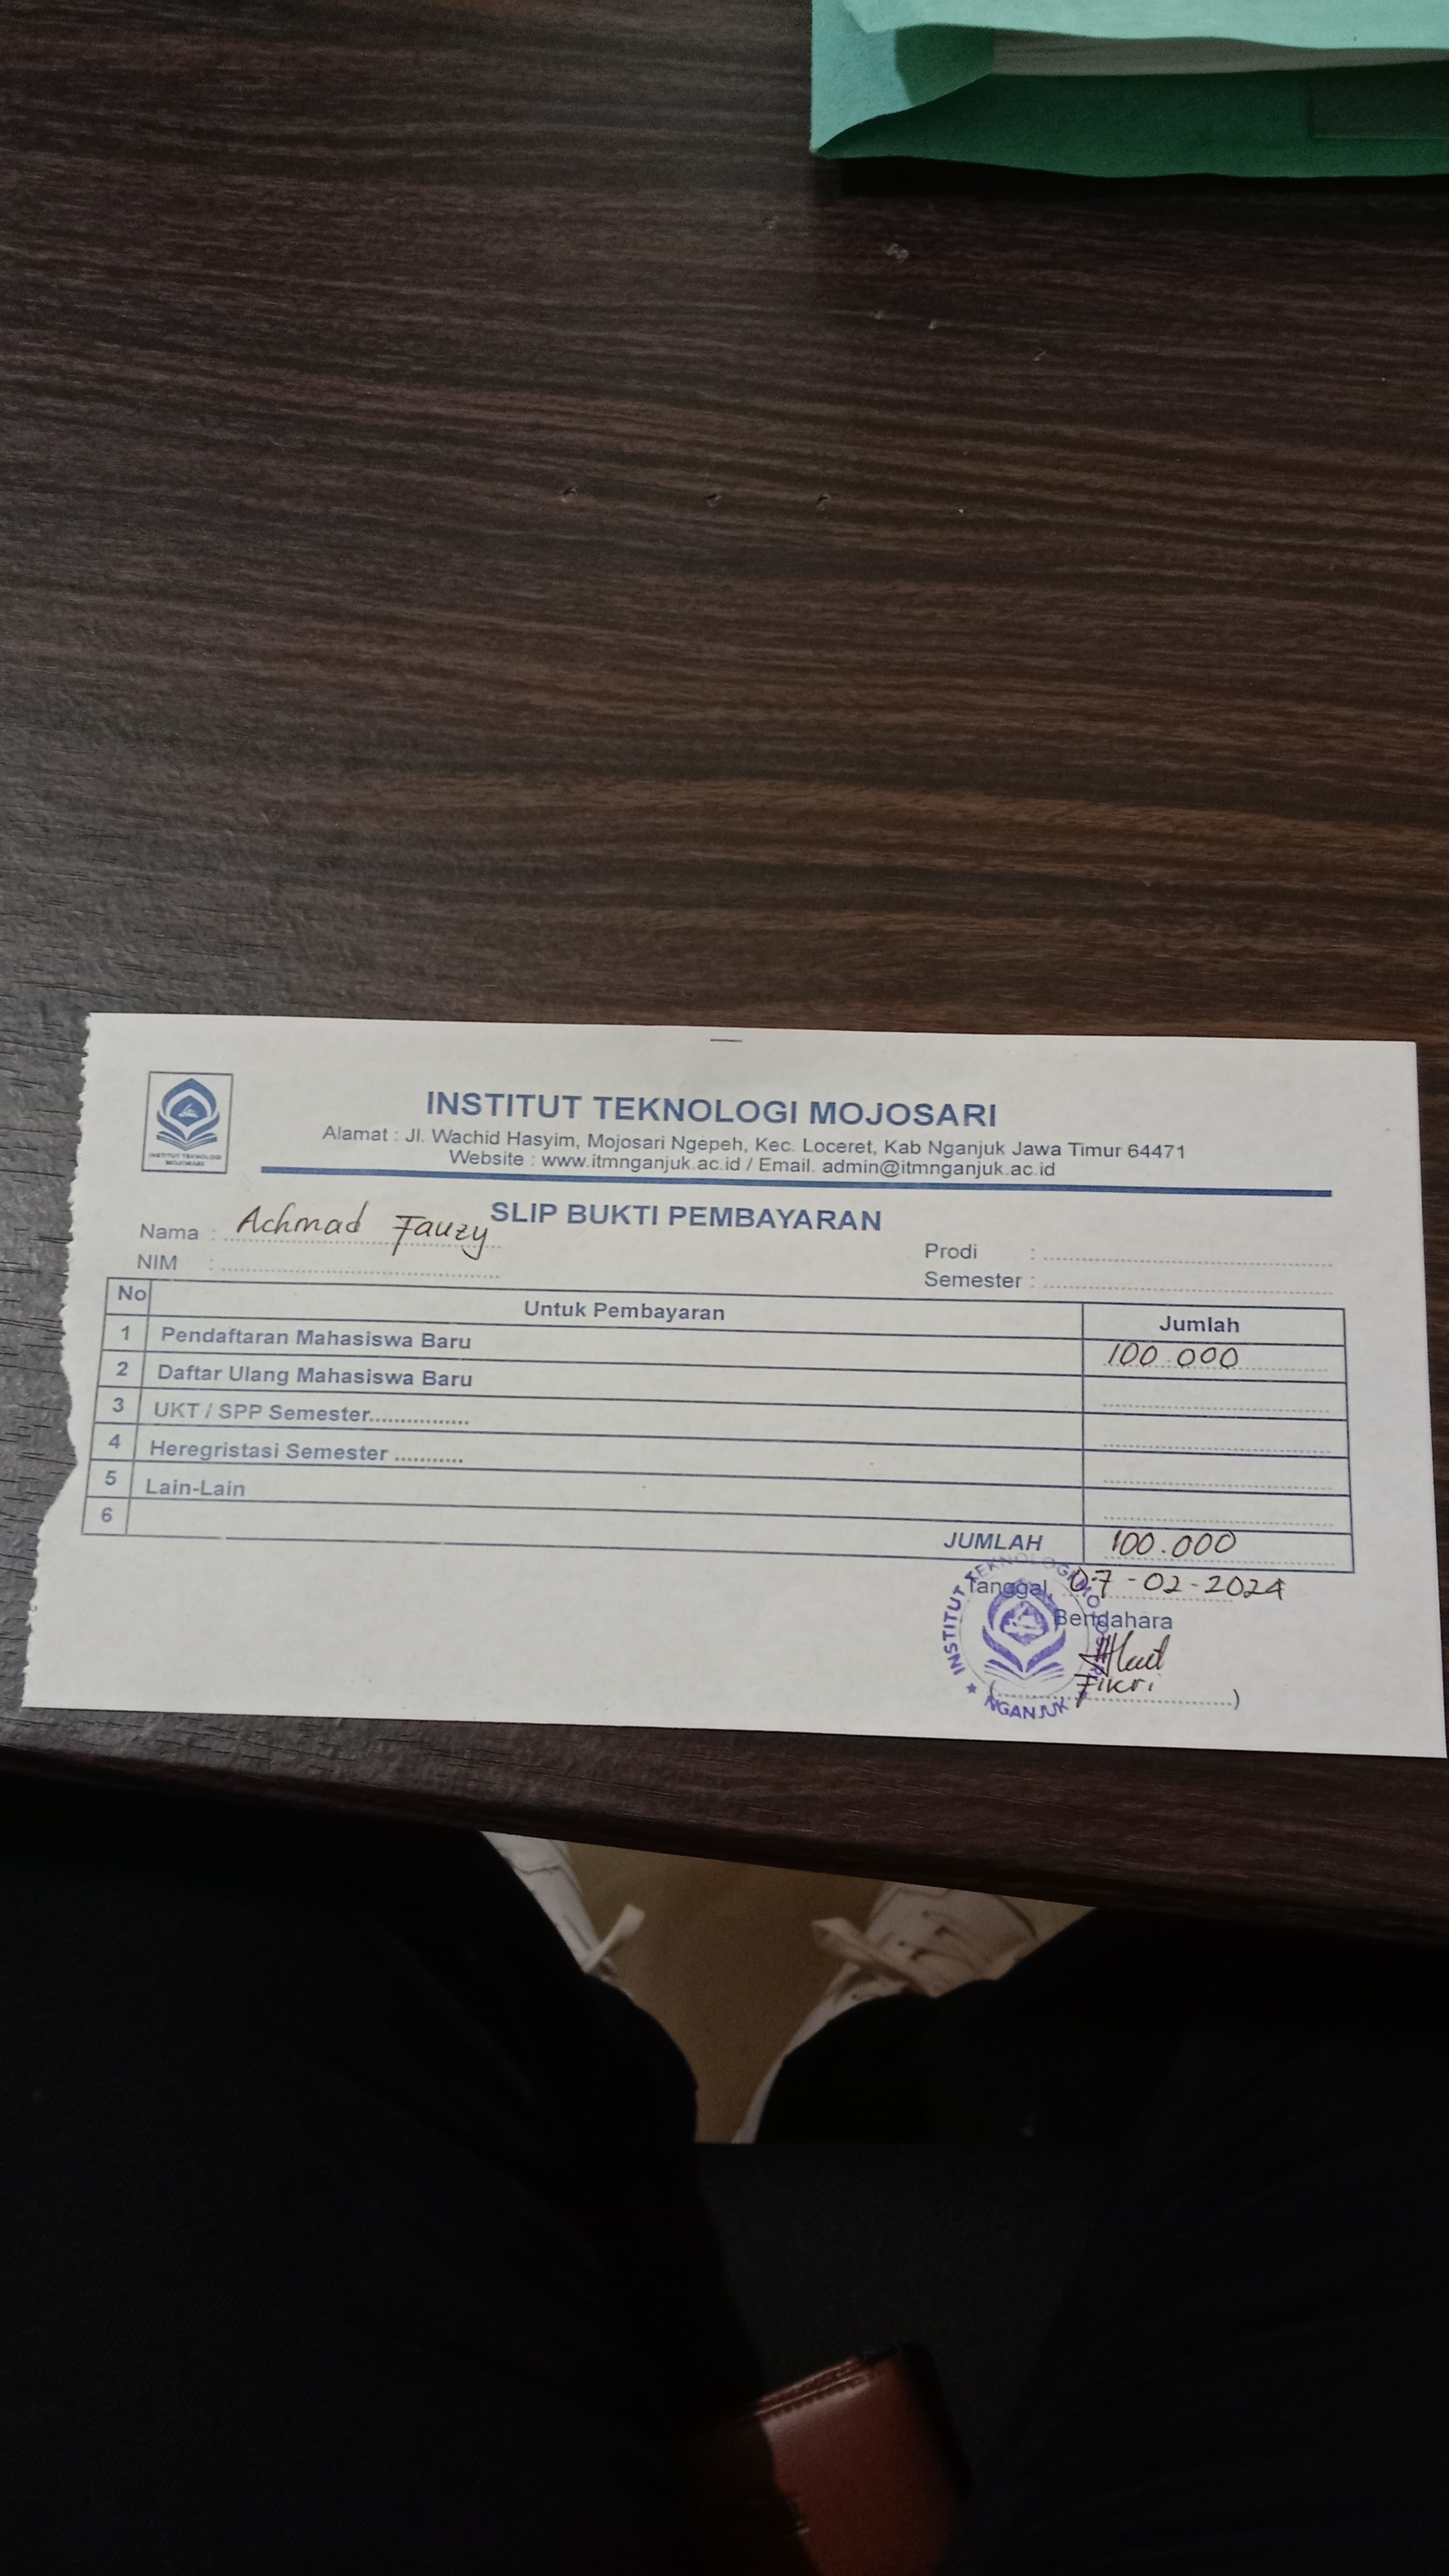 INSTITUT TEKNOLOGI
MOJOSARI
INSTITUT TEKNOLOGI MOJOSARI
Alamat : Jl. Wachid Hasyim, Mojosari Ngepeh, Kec. Loceret, Kab Nganjuk Jawa Timur 64471
Website : www.itmnganjuk.ac.id / Email. admin@itmnganjuk.ac.id
SLIP BUKTI PEMBAYARAN
Nama : Achmad Fauzy
NIM :
Prodi :
Semester :
No Untuk Pembayaran Jumlah
1 Pendaftaran Mahasiswa Baru 100.000
2 Daftar Ulang Mahasiswa Baru
3 UKT / SPP Semester................
4 Heregristasi Semester ...........
5 Lain-Lain
6
JUMLAH 100.000
Tanggal, 07-02-2024
Bendahara
Fikri
(..............................)
INSTITUT TEKNOLOGI MOJOSARI
★ NGANJUK ★